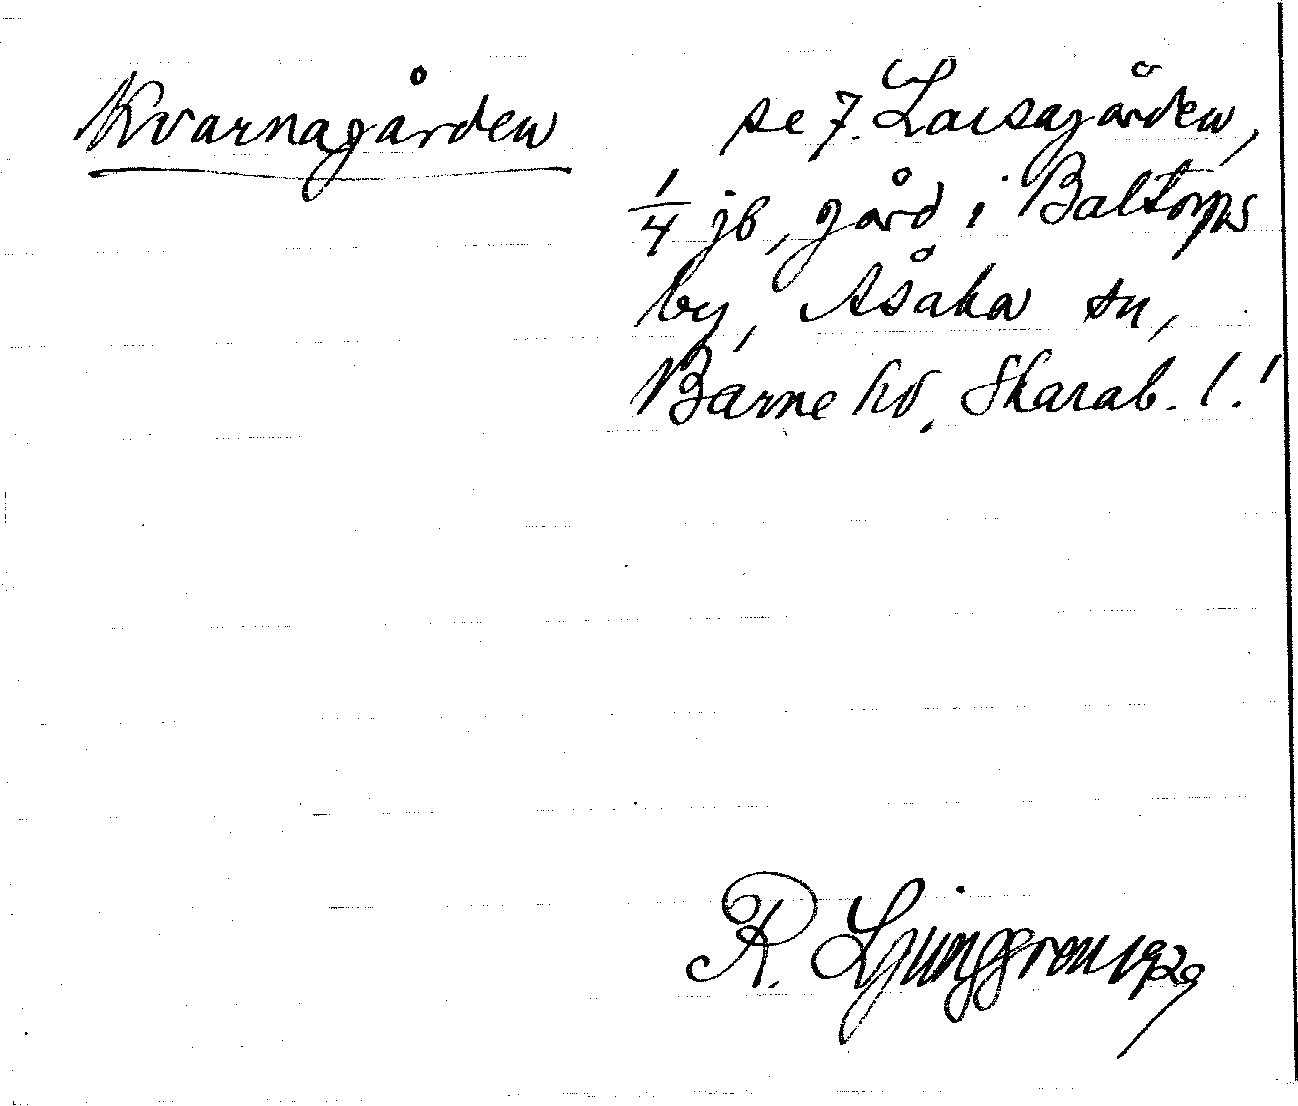 Kvarnagården
se 7. Larsagården,
1/4 jb, gård i Baltorps
by, Åsaka sn,
Barne hd, Skarab. l.!
R. Ljunggren 1929